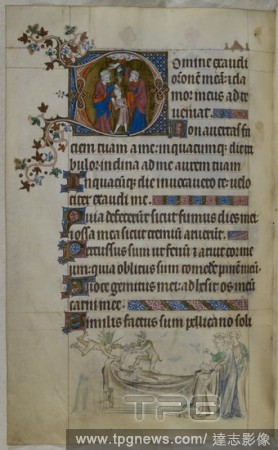 omine exaudi
orõnem meã: z cla
mor meus ad te
ueniat
Non auertas fa
ciem tuam a me: in quacumq; die tri
bulor: inclina ad me aurem tuam
In quacũq; die inuocauero te: velo
citer exaudi me
Quia defecerũt sicut fumus dies mei:
z ossa mea sicut cremiũ aruerũt
Percussus sum ut fenũ z aruit cor me
um: quia oblitus sum comedẽ panẽ meũ
A uoce gemitus mei: adhesit os meũ
carni mee
Similis factus sum pellicano soli
TPG
www.tpgnews.com / 達志影像